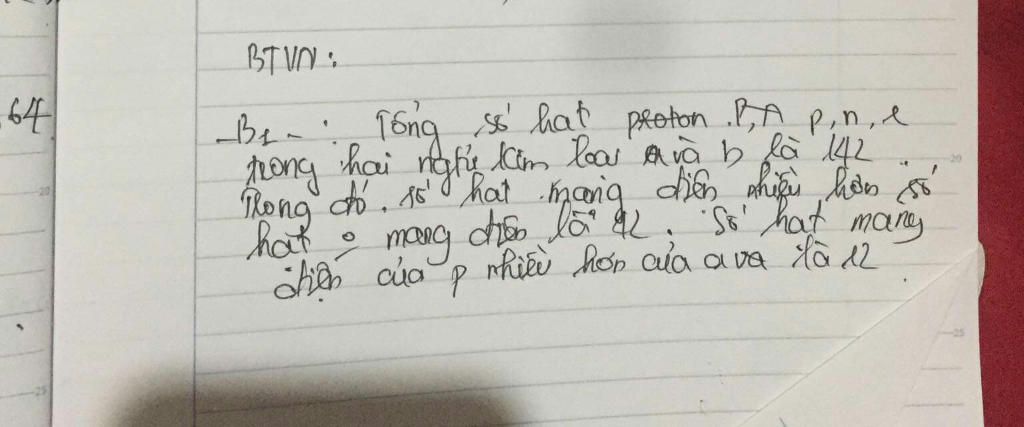 BTVN:
64
B1 - : Tổng số hat proton P, A p, n, e
trong hai ngtử kim loai a và b là 142.
Trong đó. số hat mang điện nhiều hơn số
hat o mang điện là 42. Số hat mang
điện của p nhiều hơn của a va là 12